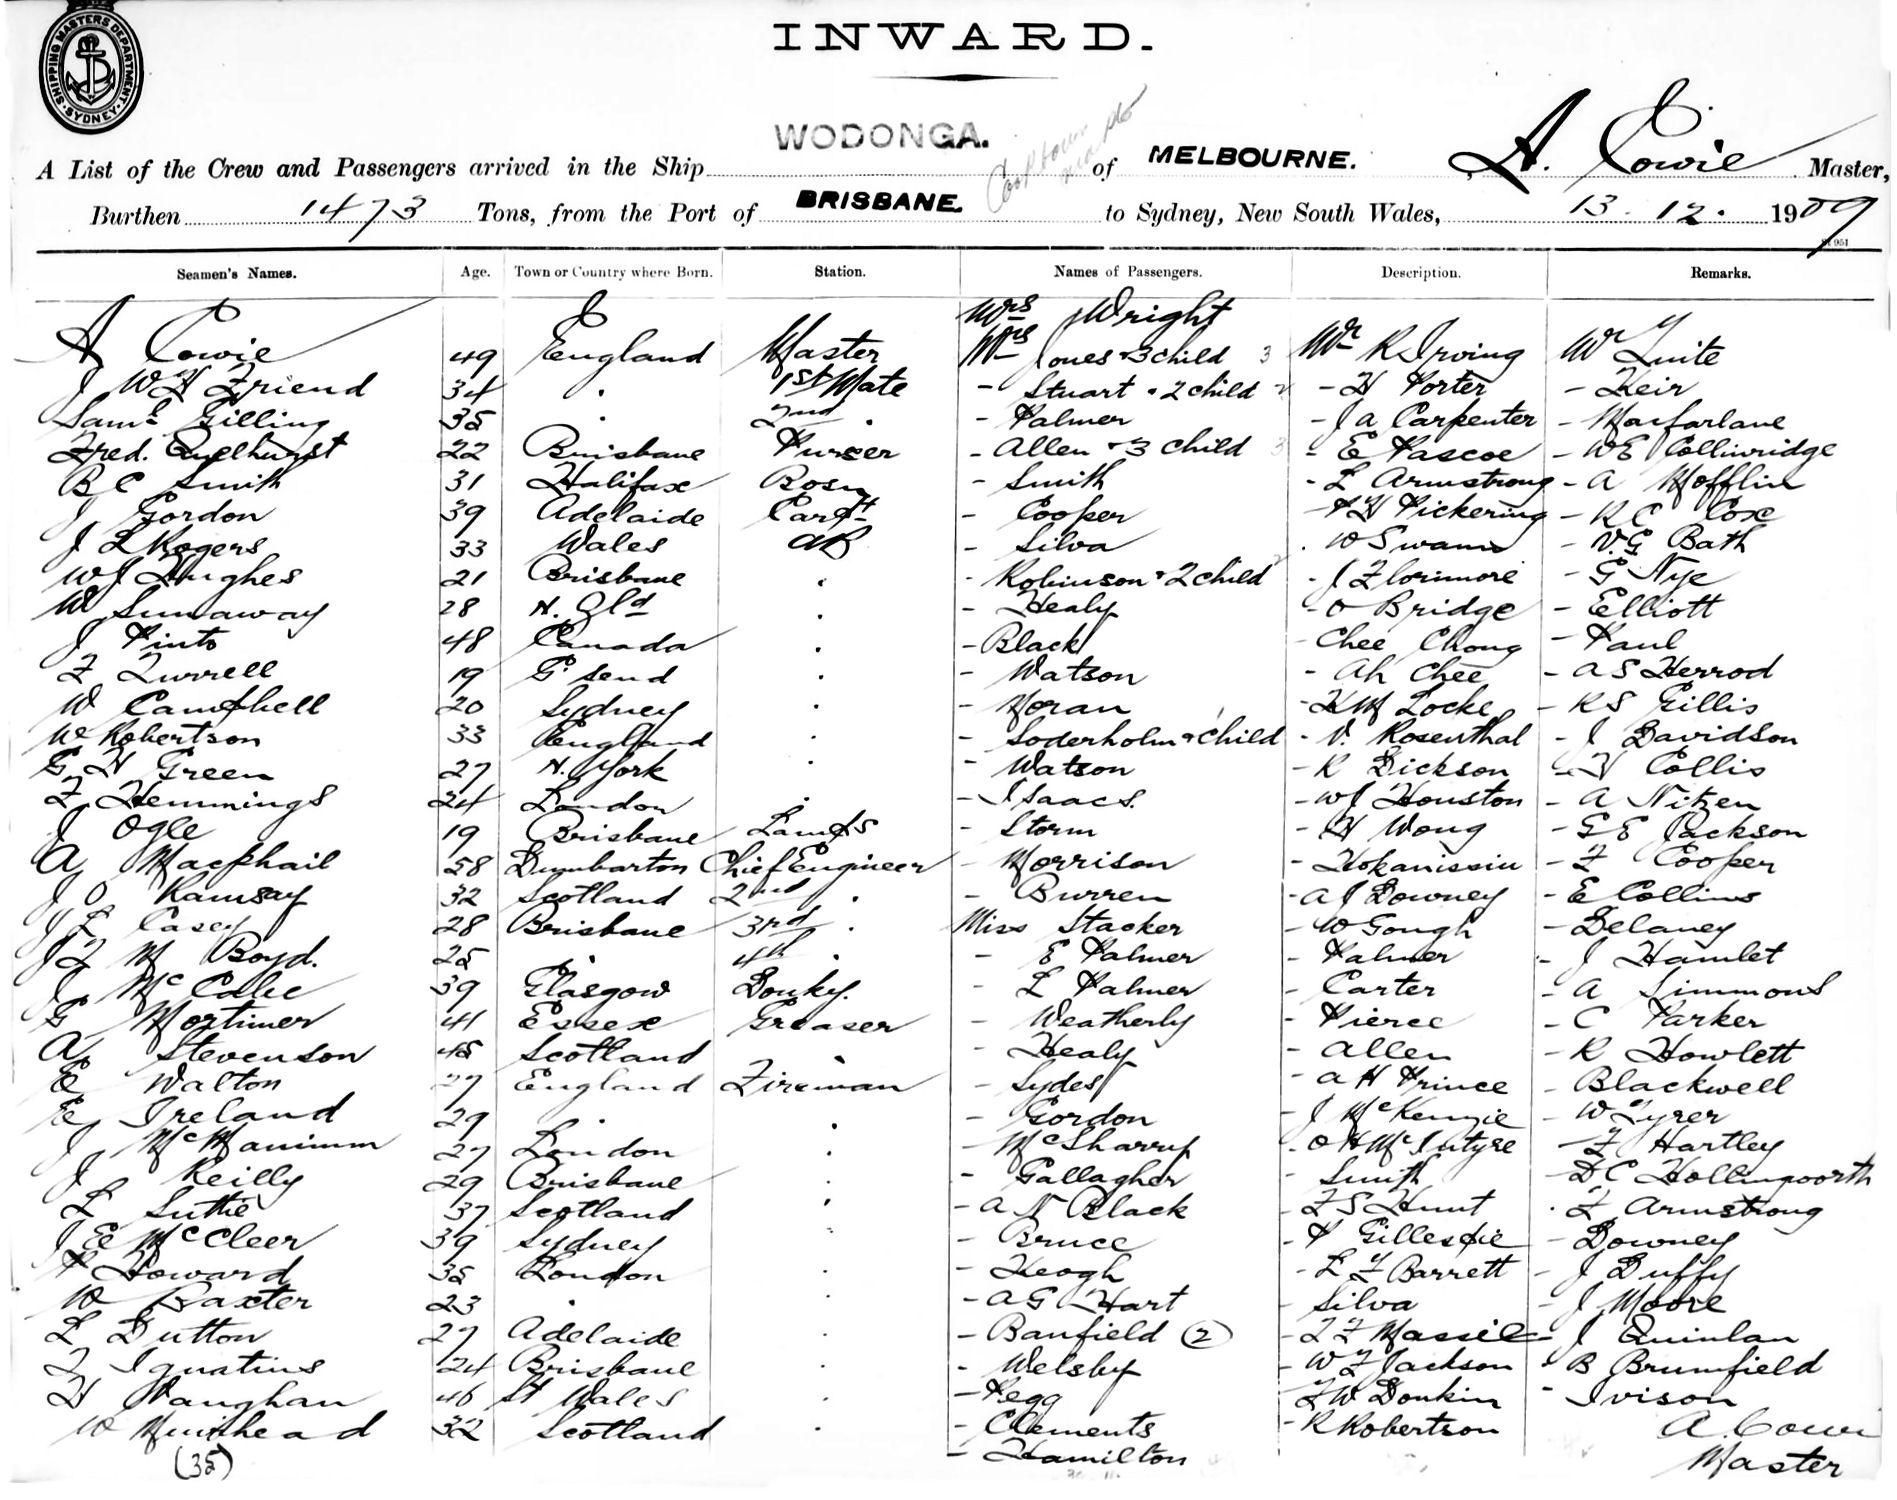 SHIPPING MASTERS DEPARTMENT. SYDNEY
INWARD.
A List of the Crew and Passengers arrived in the Ship WODONGA. of MELBOURNE. , A. Cowie Master,
Burthen 1473 Tons, from the Port of BRISBANE. to Sydney, New South Wales, 13. 12. 1909
Seamen's Names. Age. Town or Country where Born. Station. Names of Passengers. Description. Remarks.
Mrs Wright
A Cowie 49 England Master Mrs Jones & 3 child 3 Mr R Irving Mr Tuite
J W H Friend 34 " 1st Mate - Stuart & 2 child 2 - H Porter - Keir
Saml Gilling 35 " 2nd " - Palmer - J A Carpenter - Macfarlane
Fred. 22 Brisbane Purser - Allen & 3 child 3 - E Pascoe - W E Collinridge
B C Smith 31 Halifax Bosn - Smith - L Armstrong - A Mofflin
J Gordon 39 Adelaide - Cooper - Pickering - R C Cox
J L Rogers 33 Wales AB - Silva - W Swann - V. G Bath
W J Hughes 21 Brisbane " - Robinson & 2 child 2 - J F Lorimore - G Nye
W 28 " - Healy - O Bridge - Elliott
J Pinto 48 Canada " - Black - Chee Chong - Paul
F Turrell 19 G' send " - Watson - Ah Chee - A S Herrod
W Campbell 20 Sydney " - Moran - Locke - R S Gillis
W Robertson 33 England " - Soderholm & child 1 - V. Rosenthal - J Davidson
G H Green 27 N. York " - Watson - R Dickson - H Collis
F Hemmings 24 London " - Isaacs. - W J Houston - A Nitzen
J Ogle 19 Brisbane Lamps - Storm - H Wong - G E Jackson
A Macphail 58 Dumbarton Chief Engineer - Morrison - - F Cooper
J O Ramsay 32 Scotland 2nd " - Burren - A J Downey - E Collins
J L Casey 28 Brisbane 3rd " Miss Stacker - W Gough - Delaney
J F M Boyd. 25 " 4th " - E Palmer - Palmer - J Hamlet
J McCabe 39 Glasgow Donky. - L Palmer - Carter - A Simmons
G Mortimer 41 Essex Greaser - Weatherly - Pierce - C Parker
A Stevenson 45 Scotland " - Healy - Allen - R Howlett
E Walton 27 England Fireman - Sydes - A H Prince - Blackwell
E Ireland 29 " " - Gordon - J McKenzie - W Tyrer
J 27 London " - McSharry - O H McIntyre - F Hartley
J Reilly 29 Brisbane " - Gallagher - Smith - D C Hollingworth
L Suttie 37 Scotland " - A N Black - F S Hunt - F Armstrong
J E McCleer 39 Sydney " - Bruce - P Gillespie - Downey
P Howard 35 London " - Keogh - L F Barrett - J Duffy
W Baxter 23 " " - A G Hart - Silva - J Moore
L Dutton 27 Adelaide " - Banfield (2) - - J Quinlan
F Ignatius 24 Brisbane " - Welsby - W F Jackson - B Brumfield
H Vaughan 46 St Wales " - Pegg - F W Donkin - Ivison
W Muirhead 32 Scotland " - Clements - R Robertson A. Cowie
(35) - Hamilton Master